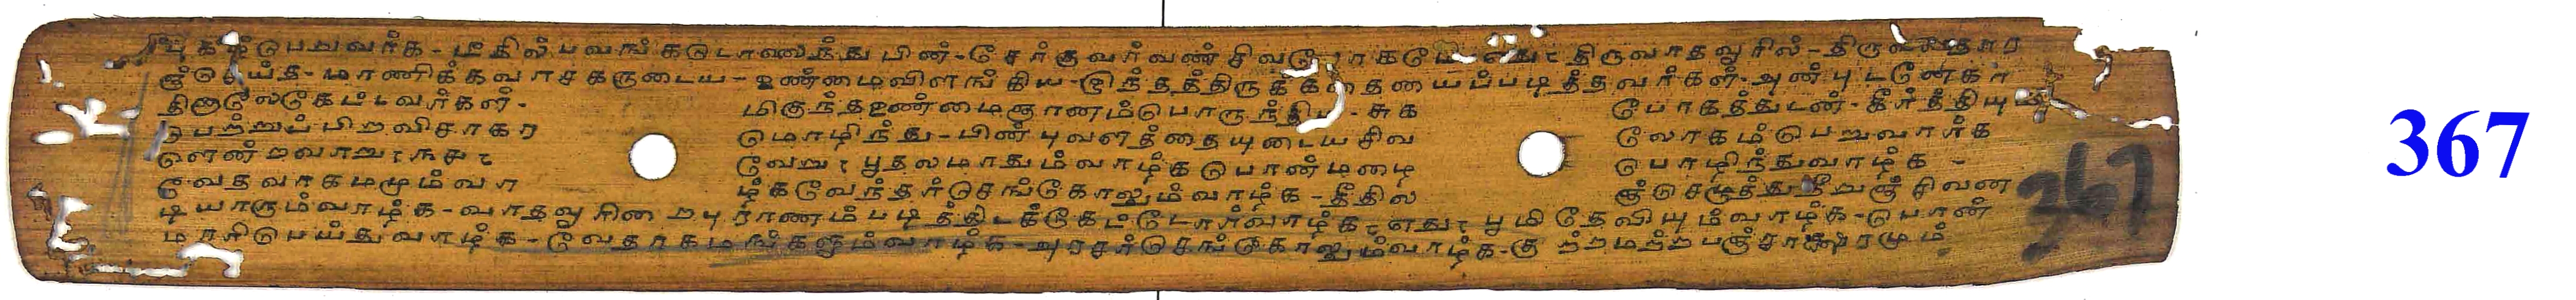 புகழ்பெறுவர்க - மீதில்பவங்கடொலைந்து பின் - சேர்குவர்வண் சிவலோகமே - எது: திருவாதவூரில் - திருஅவதார
ஞ்செய்த - மாணிக்கவாசகருடைய - உண்மைவிளங்கிய - இந்தத்திருக்கதையைப்படித்தவர்கள் - அன்புடனேகா
தினாலேகேட்டவர்கள் - மிகுந்தஉண்மைஞானம்பொருந்திய - சுக போகத்துடன் - கீர்த்தியும்
பெற்றுப்பிறவிசாகர மொழிந்து - பின்புவளத்தையுடையசிவ லோகம்பெறுவார்க
ளென்றவாறு வேறு: பூதலமாதும்வாழ்க பொன்மழை பொழிந்துவாழ்க -
வேதவாகமமும்வா ழ்கவேந்தர்செங்கோலும்வாழ்க - தீதில ஞ்செழுத்துநீறுஞ்சிவன
டியாரும்வாழ்க - வாதவூரினறபுராணம்படித்திடக்கேட்டோர்வாழ்க: எது: பூமிதேவியும்வாழ்க - பொன்
மாரிபெய்துவாழ்க - வேதாகமங்களும்வாழ்க - அரசர்செங்கோலும்வாழ்க - குற்றமற்றபஞ்சாக்ஷரமும்
367
367